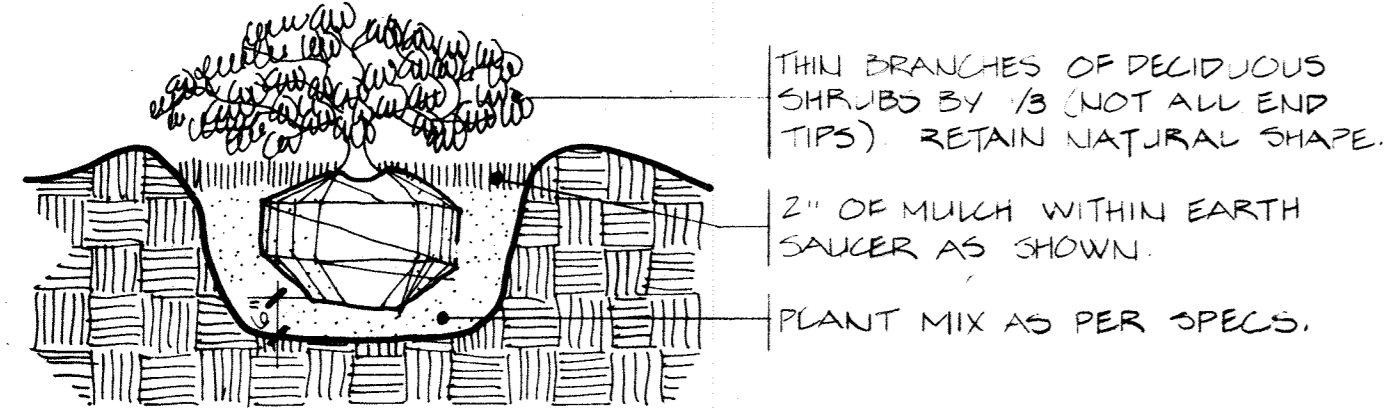 THIN BRANCHES OF DECIDUOUS
SHRUBS BY 1/3 (NOT ALL END
TIPS). RETAIN NATURAL SHAPE.
2" OF MULCH WITHIN EARTH
SAUCER AS SHOWN.
6"
PLANT MIX AS PER SPECS.